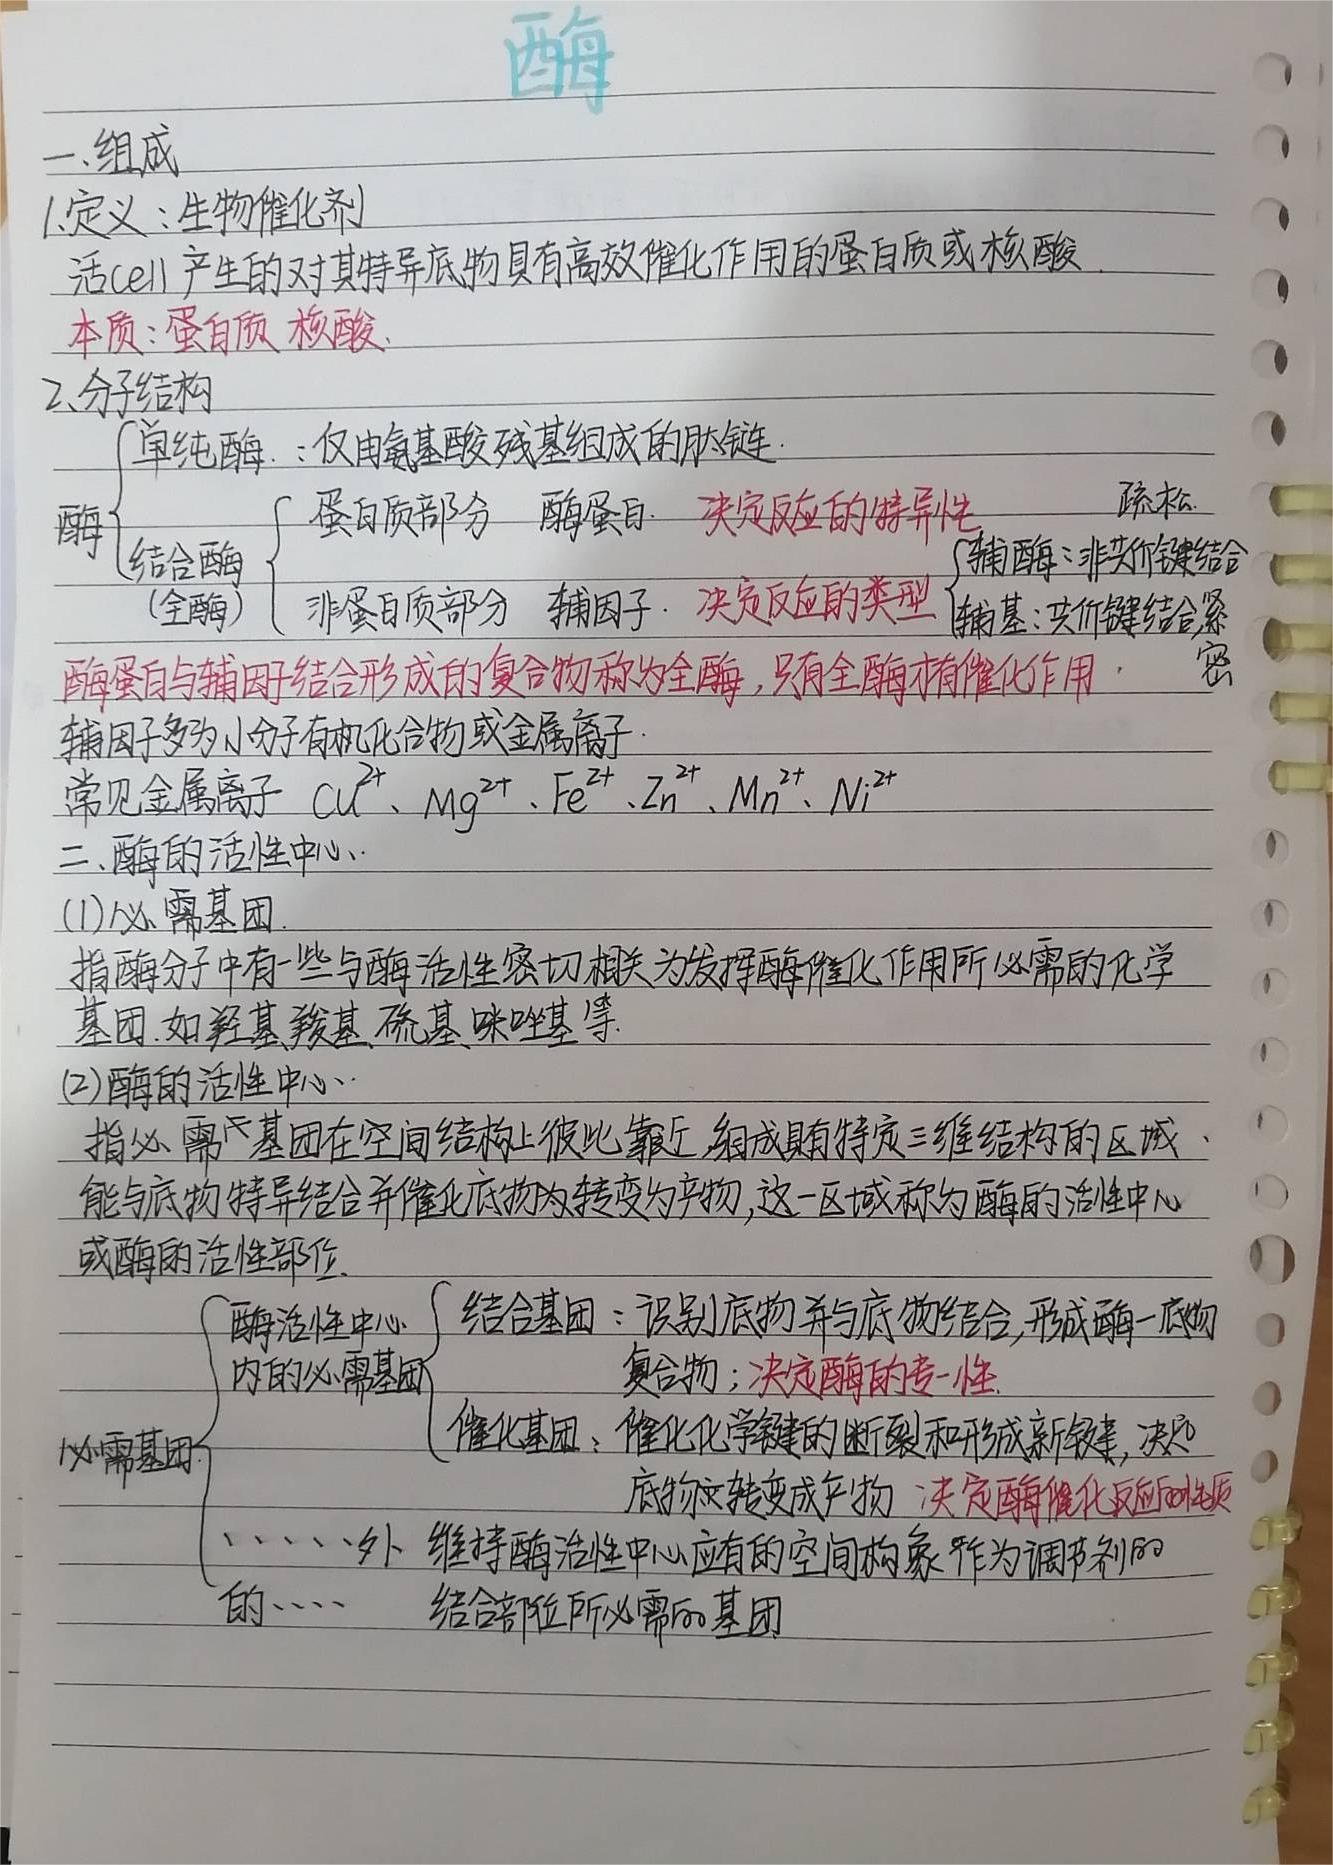 酶
一、组成
1.定义：生物催化剂
活cell产生的对其特异底物具有高效催化作用的蛋白质或核酸.
本质：蛋白质 核酸.
2、分子结构
单纯酶.：仅由氨基酸残基组成的肽链.
酶
蛋白质部分 酶蛋白. 决定反应的特异性 疏松.
结合酶
(全酶)
辅酶：非共价键结合
非蛋白质部分 辅因子. 决定反应的类型
辅基：共价键结合,紧
密
酶蛋白与辅因子结合形成的复合物称为全酶,只有全酶才有催化作用.
辅因子多为小分子有机化合物或金属离子.
常见金属离子 Cu²⁺、Mg²⁺、Fe²⁺、Zn²⁺、Mn²⁺、Ni²⁺
二、酶的活性中心.
(1)必需基团.
指酶分子中有一些与酶活性密切相关为发挥酶催化作用所必需的化学
基团.如羟基、羧基、硫基、咪唑基等.
(2)酶的活性中心.
指必需基团在空间结构上彼此靠近,组成具有特定三维结构的区域、
能与底物特异结合并催化底物转变为产物,这一区域称为酶的活性中心
或酶的活性部位.
酶活性中心
内的必需基团
结合基团：识别底物并与底物结合,形成酶一底物
复合物；决定酶的专一性.
必需基团.
催化基团：催化化学键的断裂和形成新键,决定
底物转变成产物 决定酶催化反应的性质
、、、、、外 维持酶活性中心应有的空间构象 作为调节剂的
的、、、、 结合部位所必需的基团